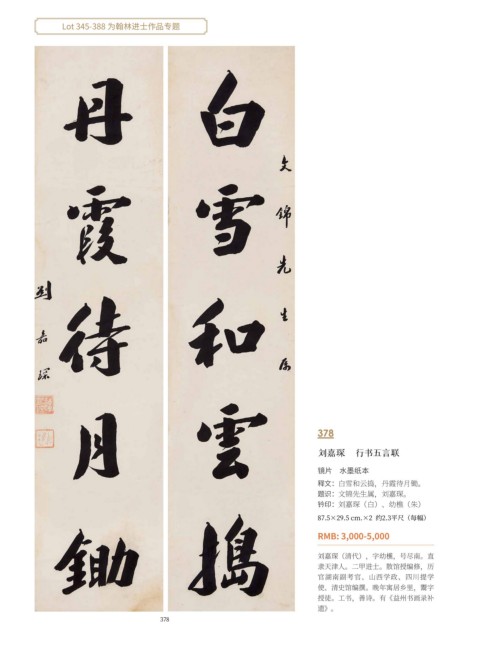 Lot 345-388 为翰林进士作品专题
白雪和雲搗
文錦先生属
丹霞待月鋤
劉嘉琛
378
刘嘉琛 行书五言联
镜片 水墨纸本
释文：白雪和云捣，丹霞待月锄。
题识：文锦先生属，刘嘉琛。
钤印：刘嘉琛（白）、幼樵（朱）
87.5×29.5 cm.×2 约2.3平尺（每幅）
RMB: 3,000-5,000
刘嘉琛（清代），字幼樵，号尽南，直
隶天津人。二甲进士。散馆授编修，历
官湖南副考官、山西学政、四川提学
使，清史馆编撰。晚年寓居乡里，鬻字
授徒。工书，善诗。有《益州书画录补
遗》。
378